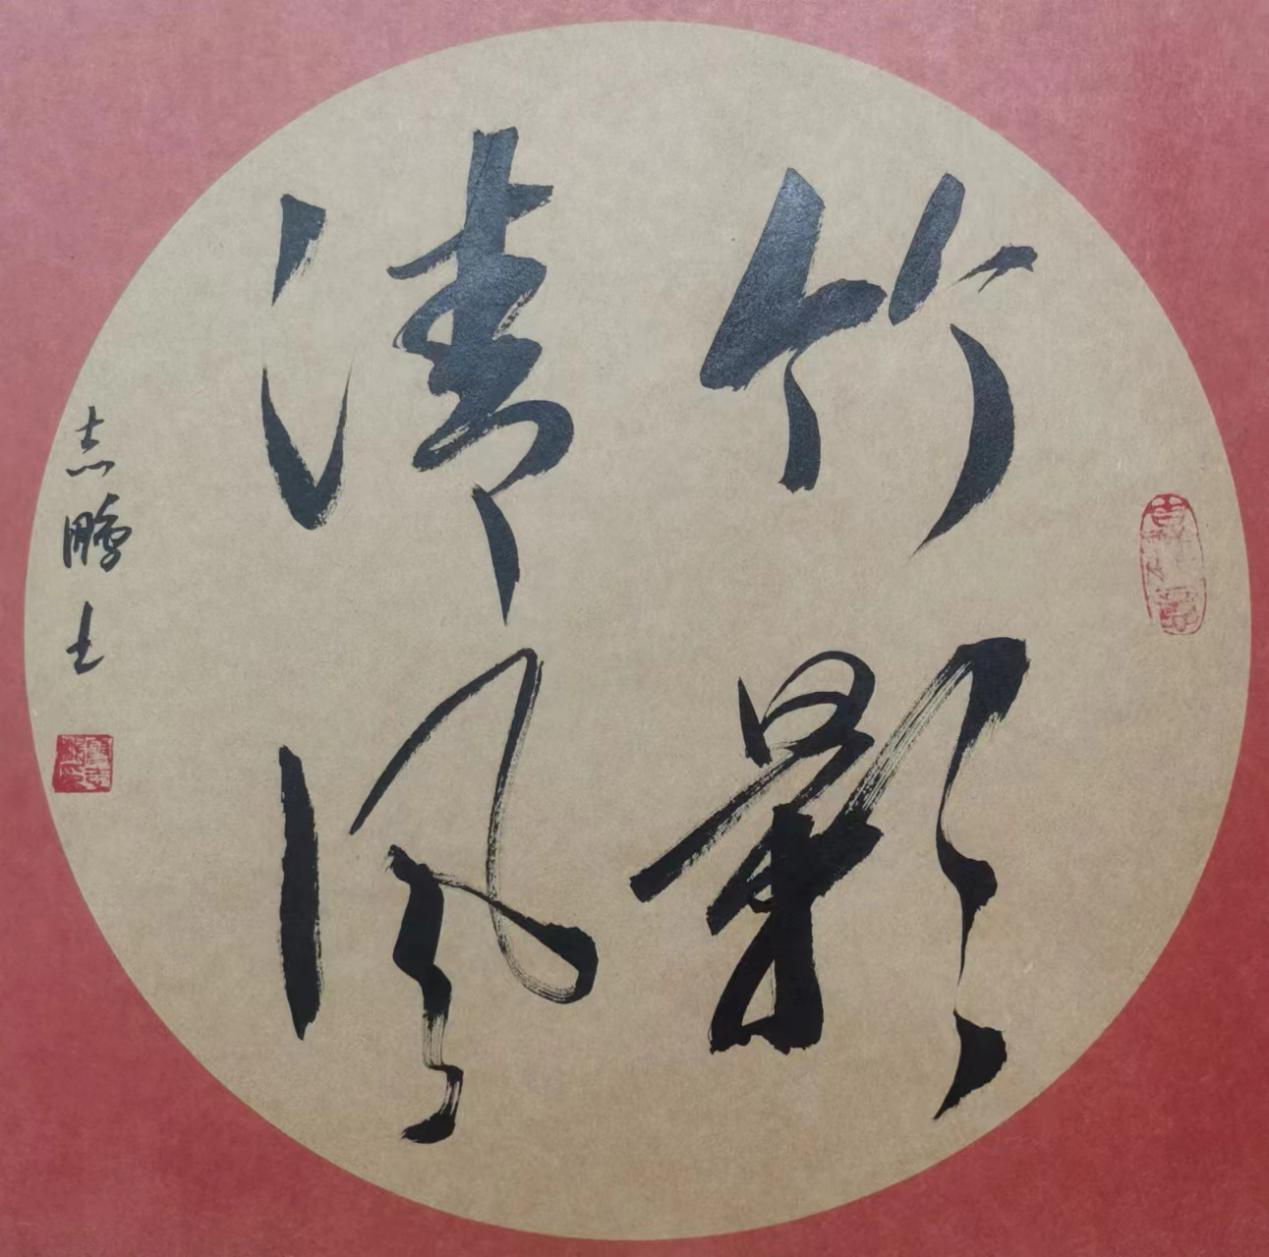 竹影
清风
志鹏书